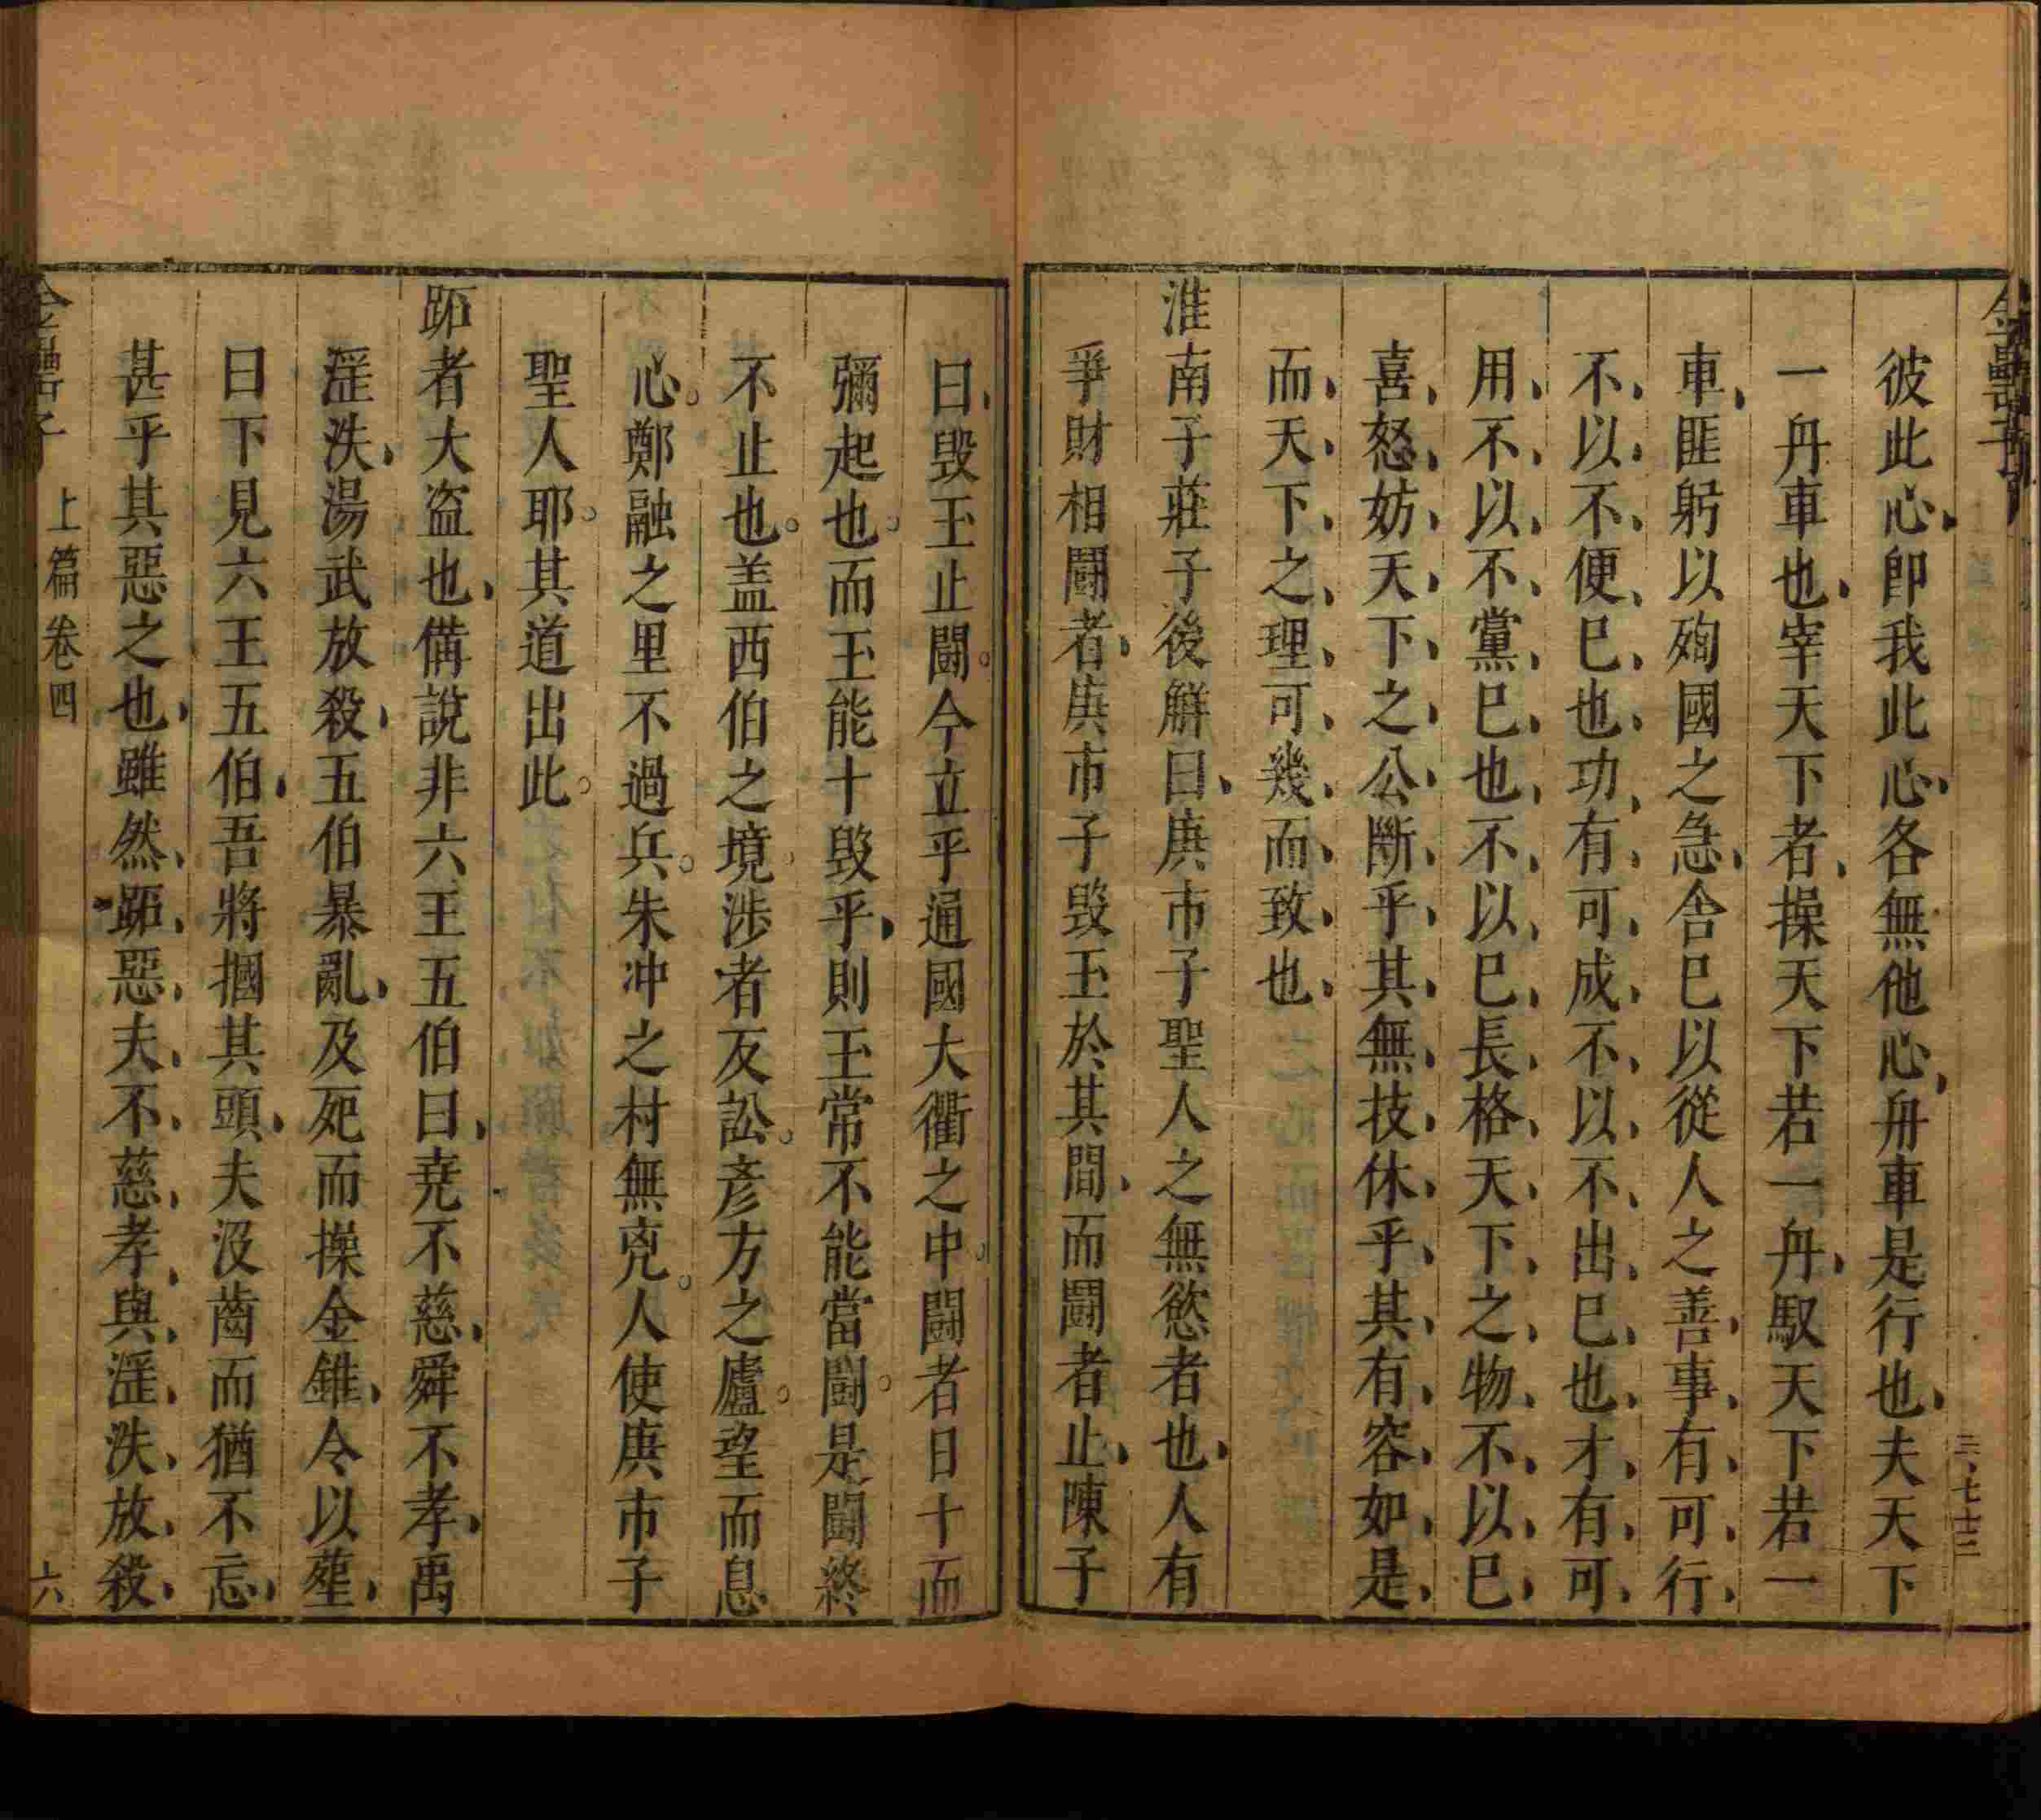 金罍子
三七七三
彼此心、卽我此心、各無他心、舟車是行也、夫天下
一舟車也、宰天下者、操天下若一舟、馭天下若一
車、匪躬以殉國之急、舍已以從人之善、事、有、可、行、
不、以、不、便、已、也、功、有、可、成、不、以、不、出、已、也、才、有、可、
用、不、以、不、黨、已、也、不、以、已、長、格、天、下、之、物、不、以、已、
喜、怒、妨、天、下、之、公、斷、乎、其、無、技、休、乎、其、有、容、如、是、
而、天、下、之、理、可、幾、而、致、也、
淮南子莊子後解曰、庚市子聖人之無慾者也、人有
爭財相鬭者、庚市子毀玉於其間、而鬭者止、陳子
曰、毀玉止鬭。今立乎通國大衢之中。鬭者日十而
彌起也。而玉能十毀乎、則玉常不能當鬭。是鬭終
不止也。盖西伯之境。涉者反訟。彥方之廬。望而息
心。鄭融之里不過兵。朱冲之村無兕。人使庚市子
聖人耶。其道出此。
跖者大盜也、備說非六王五伯曰、堯不慈、舜不孝、禹
淫泆、湯武放殺、五伯暴亂、及死而操金錐、令以葬、
曰下見六王五伯、吾將摑其頭、夫沒齒而猶不忘、
甚乎其惡之也、雖然、跖、惡、夫、不、慈、孝、與、淫、泆、放、殺、
金罍子 上篇卷四 六